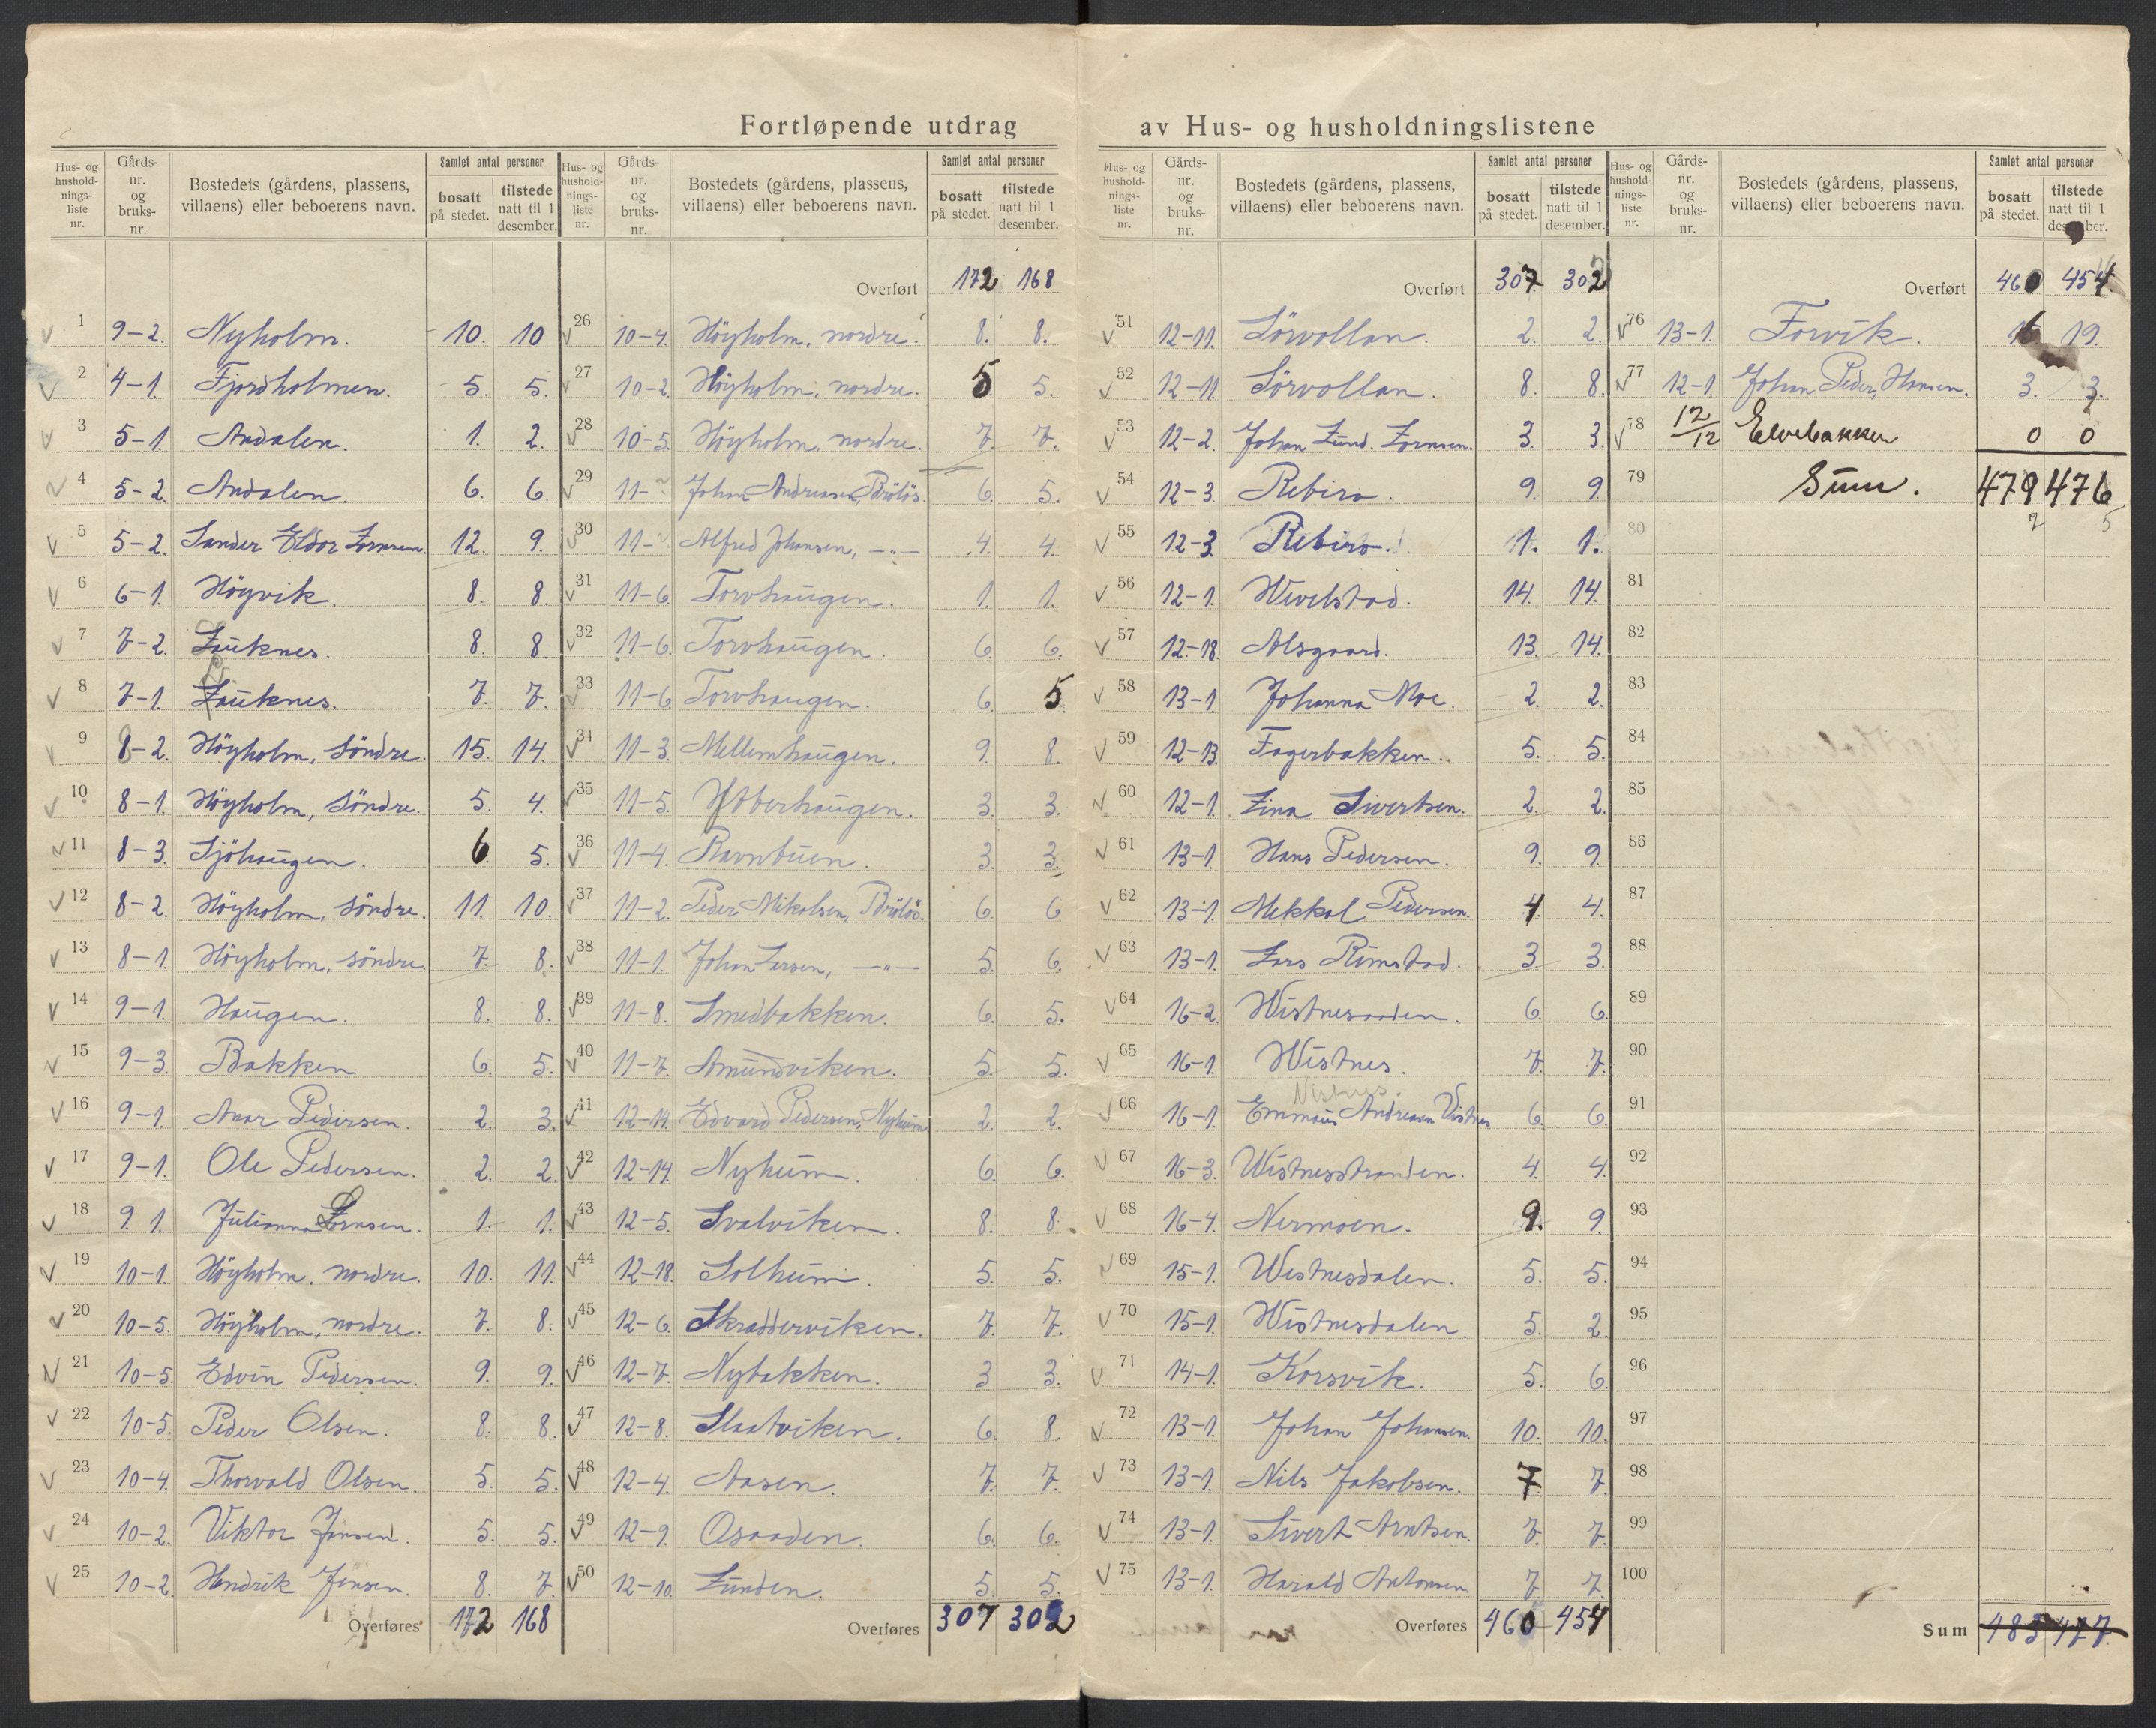 Fortløpende utdrag av Hus- og husholdningslistene
Hus- og hushold-nings-liste nr. Gårds-nr. og bruks-nr. Bostedets (gårdens, plassens, villaens) eller beboerens navn. Samlet antal personer bosatt på stedet. tilstede natt til 1 desember.
1 9-2. Nyholm. 10. 10
2 4-1. Fjordholmen. 5. 5.
3 5-1. Andalen. 1. 2.
4 5-2. Andalen. 6. 6.
5 5-2. Sander Eldor Lornsen. 12. 9.
6 6-1. Höyvik. 8. 8.
7 7-2. Lauknes. 8. 8.
8 7-1. Lauknes. 7. 7.
9 8-2. Höyholm, söndre. 15. 14.
10 8-1. Höyholm, söndre. 5. 4.
11 8-3. Sjöhaugen. 6 5.
12 8-2. Höyholm, söndre. 11. 10.
13 8-1. Höyholm, söndre. 7. 8.
14 9-1. Haugen. 8. 8.
15 9-3. Bakken 6. 5.
16 9-1. Anar Pedersen. 2. 3.
17 9-1. Ole Pedersen. 2. 2.
18 9 1. Julianna Lornsen. 1. 1.
19 10-1. Höyholm. nordre. 10. 11.
20 10-5. Höyholm, nordre. 7. 8.
21 10-5. Edvin Pedersen. 9. 9.
22 10-5. Peder Olsen. 8. 8.
23 10-4. Thorvald Olsen. 5. 5.
24 10-2. Viktor Jensen. 5. 5.
25 10-2. Hendrik Jensen. 8. 7.
Overføres 172 168
Hus- og hushold-nings-liste nr. Gårds-nr. og bruks-nr. Bostedets (gårdens, plassens, villaens) eller beboerens navn. Samlet antal personer bosatt på stedet. tilstede natt til 1 desember.
Overført 172 168
26 10-4. Höyholm, nordre. 8. 8.
27 10-2. Höyholm, nordre. 5 5.
28 10-5. Höyholm, nordre. 7. 7.
29 11- Johan Andreasen, Brölös. 6. 5.
30 11- Alfred Johansen, —„— 4. 4.
31 11-6. Torvhaugen. 1. 1.
32 11-6. Torvhaugen. 6. 6.
33 11-6. Torvhaugen. 6. 5
34 11-3. Mellemhaugen. 9. 8.
35 11-5. Ytterhaugen. 3. 3.
36 11-4. Ravnbuen. 3. 3.
37 11-2. Peder Mikalsen, Brölös. 6. 6
38 11-1. Johan Larsen, —„— 5. 6.
39 11-8. Smedbakken. 6. 5.
40 11-7. Amundviken. 5. 5.
41 12-14. Edvard Pedersen, Nyheim. 2. 2.
42 12-14. Nyheim. 6. 6.
43 12-5. Svalviken. 8. 8.
44 12-18. Solheim. 5. 5.
45 12-6. Skradderviken. 7. 7.
46 12-7. Nybakken. 3 3.
47 12-8. Slaatviken. 6. 8.
48 12-4. Aasen. 7. 7.
49 12-9. Osaaden. 6. 6.
50 12-10. Lunden. 5. 5.
Overføres 307 302
Hus- og hushold-nings-liste nr. Gårds-nr. og bruks-nr. Bostedets (gårdens, plassens, villaens) eller beboerens navn. Samlet antal personer bosatt på stedet. tilstede natt til 1 desember.
Overført 307 302
51 12-11. Sörvollan. 2. 2.
52 12-11. Sörvollan. 8. 8.
53 12-2. Johan Lund. Lornsen. 3. 3.
54 12-3. Rebiro. 9. 9.
55 12-3. Rebiro. 1. 1.
56 12-1. Wevelstad. 14. 14.
57 12-18. Alsgaard. 13. 14.
58 13-1. Johanna Moe. 2. 2.
59 12-13. Fagerbakken. 5. 5.
60 12-1. Lina Sivertsen. 2. 2.
61 13-1. Hans Pedersen. 9. 9.
62 13-1. Mekkal Pedersen. 4. 4.
63 13-1. Lars Rimstad. 3. 3.
64 16-2. Wistnesaaden. 6. 6.
65 16-1. Wistnes. 7. 7.
Vistnes.
66 16-1. Emmaus Andreasen Vistnes 6. 6.
67 16-3. Wistnesstranden. 4. 4.
68 16-4. Nermoen. 9. 9.
69 15-1. Westnesdalen. 5. 5.
70 15-1. Wistnesdalen. 5. 2.
71 14-1. Korsvik. 5. 6.
72 13-1. Johan Johansen. 10. 10.
73 13-1. Nils Jakobsen. 7 7.
74 13-1. Sivert Arntsen. 7. 7.
75 13-1. Harald Antonsen. 7. 7.
Overføres 460 454
Hus- og hushold-nings-liste nr. Gårds-nr. og bruks-nr. Bostedets (gårdens, plassens, villaens) eller beboerens navn. Samlet antal personer bosatt på stedet. tilstede natt til 1 desember.
Overført 460 454
76 13-1. Forvik. 16 19.
77 12-1. Johan Peder Hansen. 3. 3.
78 12/12 Elvebakken 0 0
79 Sum. 479 476
7 5
80
81
82
83
84
85
86
87
88
89
90
91
92
93
94
95
96
97
98
99
100
Sum 483 477